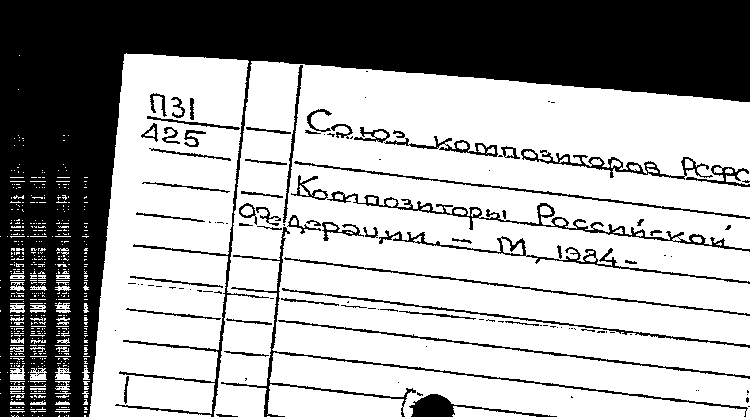 П31
425
Союз композиторов РСФС
Композиторы Российской
Федерации. – М., 1984 –